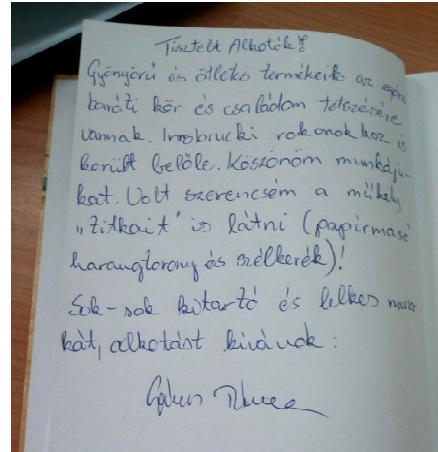 Tisztelt Alkotók!
Gyönyörű és ötletes termékeik az egész
baráti kör és családom tetszésére
vannak. Innsbrucki rokonokhoz is
került belőle. Köszönöm munkáju-
kat. Volt szerencsém a műhely
„titkait" is látni (papírmasé
harangtorony és szélkerék)!
Sok-sok kitartó és lelkes mun-
kát, alkotást kívánok: